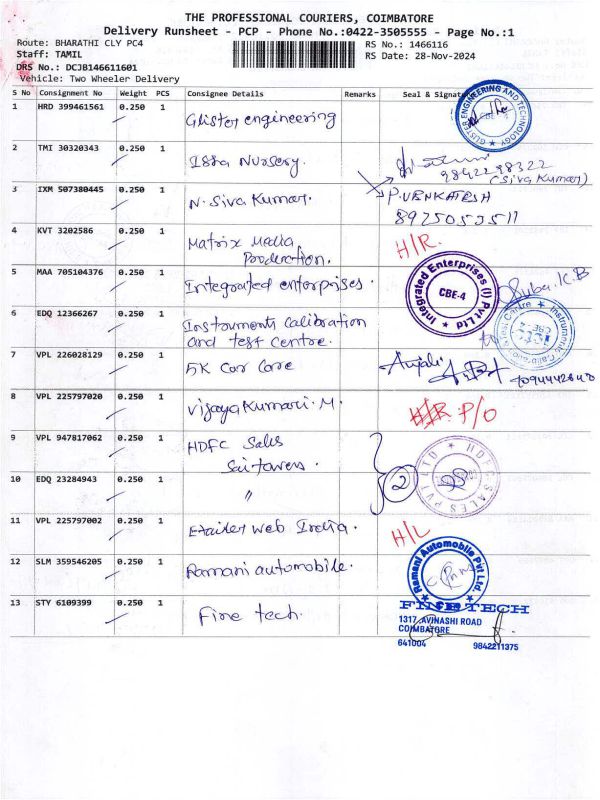 THE PROFESSIONAL COURIERS, COIMBATORE
Delivery Runsheet - PCP - Phone No.:0422-3505555 - Page No.:1
Route: BHARATHI CLY PC4
RS No.: 1466116
Staff: TAMIL
RS Date: 28-Nov-2024
DRS No.: DCJB146611601
Vehicle: Two Wheeler Delivery
S No Consignment No Weight PCS Consignee Details Remarks Seal & Signature
1 HRD 399461561 0.250 1 Glister engineering
GLISTER ENGINEERING AND TECHNOLOGY
2 TMI 30320343 0.250 1 Isha Nursery.
9842298322
(Siva Kumar)
3 IXM 507380445 0.250 1 N. Siva Kumar. P. VENKATESH
8925053511
4 KVT 3202586 0.250 1 Matrix Media
Production. H/R.
5 MAA 705104376 0.250 1 Integrated enterprises.
Integrated Enterprises (I) Pvt Ltd
CBE-4
Suba. K.B
6 EDQ 12366267 0.250 1 Instruments calibration
and test centre.
7 VPL 226028129 0.250 1 5K Car Care Anjali
8 VPL 225797020 0.250 1 Vijaya Kumari. M. P/O
9 VPL 947817062 0.250 1 HDFC Sales
Saitowers. 2
HDFC SALES PVT LTD
10 EDQ 23284943 0.250 1 "
11 VPL 225797002 0.250 1 Etailer web India. H/L
12 SLM 359546205 0.250 1 Ramani automobile.
Ramani Automobile Pvt Ltd.
13 STY 6109399 0.250 1 Fine tech.
FINE TECH
1317, AVINASHI ROAD
COIMBATORE
641004 9842211375